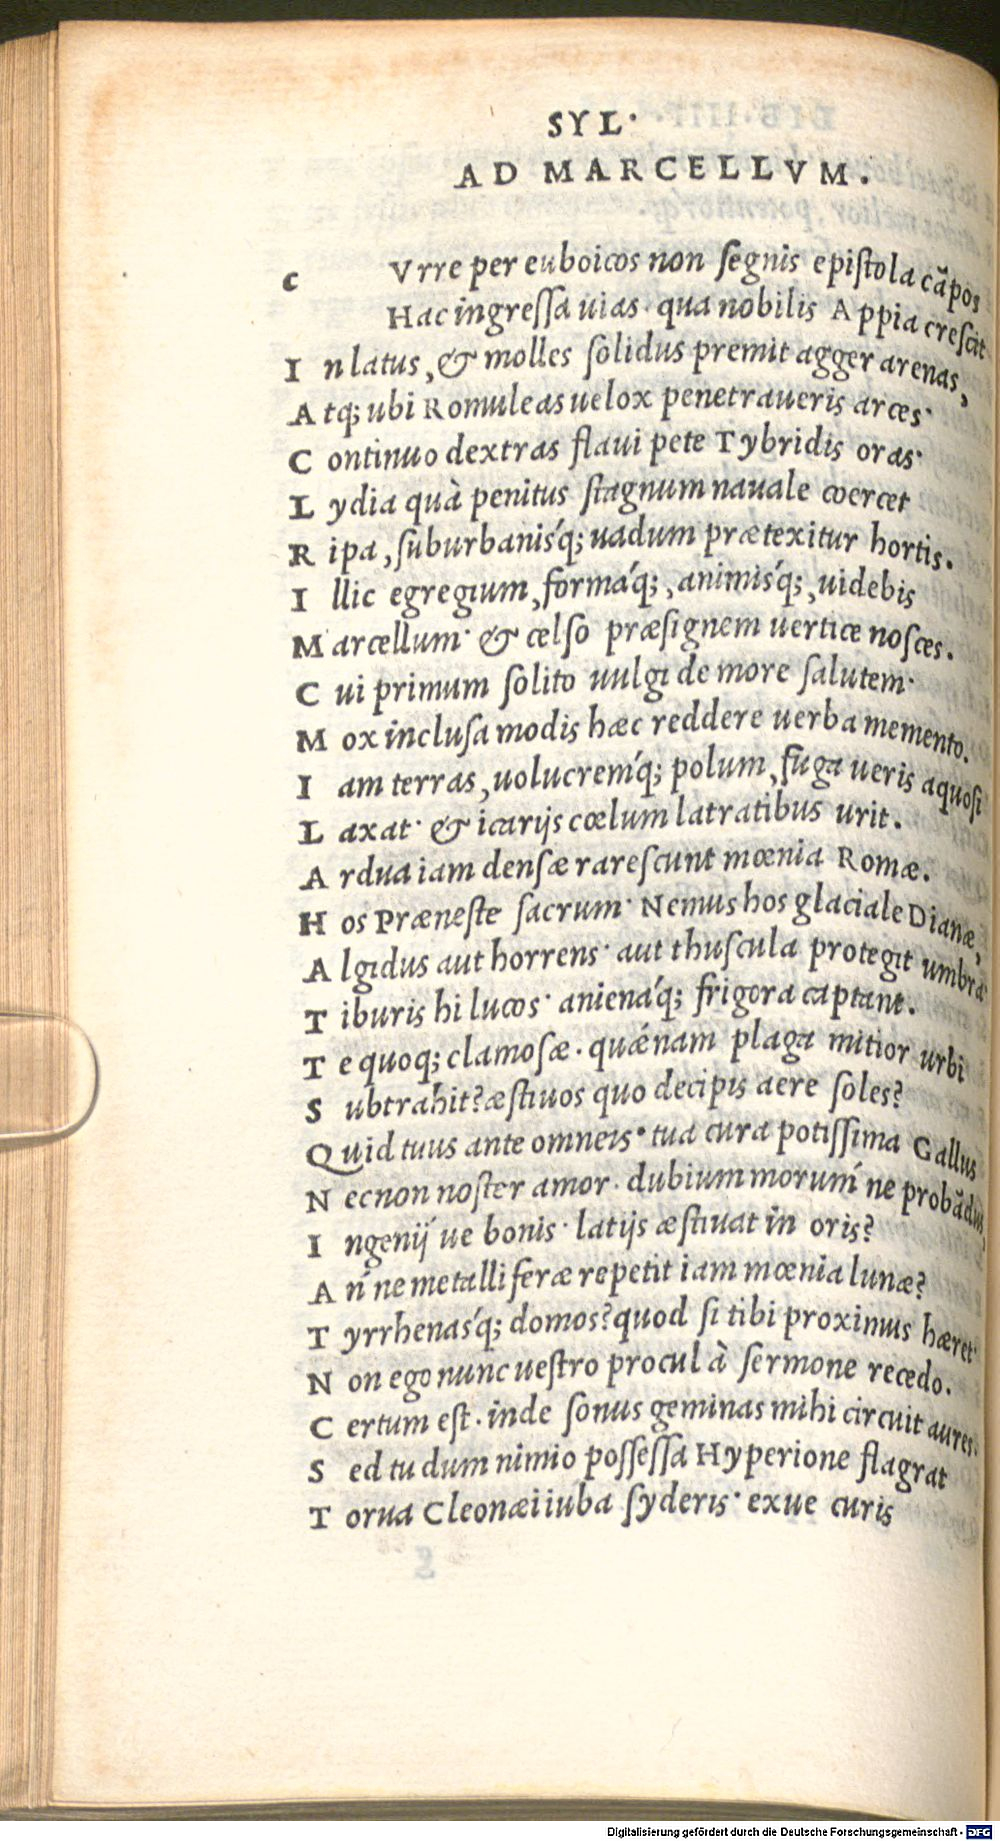 SYL·
AD MARCELLVM.
c Vrre per euboicos non segnis epistola cãpos
Hac ingressa uias· qua nobilis Appia crescit
In latus, & molles solidus premit agger arenas,
Atq; ubi Romuleas uelox penetraueris arces·
Continuo dextras flaui pete Tybridis oras·
Lydia quà penitus stagnum nauale coercet
Ripa, suburbanis'q; uadum prætexitur hortis.
Illic egregium, forma'q;, animis'q;, uidebis
Marcellum· & celso præsignem uertice nosces.
Cui primum solito uulgi de more salutem·
Mox inclusa modis hæc reddere uerba memento.
Iam terras, uolucrem'q; polum, fuga ueris aquosi
Laxat· & icarijs cœlum latratibus urit.
Ardua iam densæ rarescunt mœnia Romæ.
Hos Præneste sacrum· Nemus hos glaciale Dianæ,
Algidus aut horrens· aut thuscula protegit umbra·
Tiburis hi lucos· aniena'q; frigora captant.
Te quoq; clamosæ· quǽnam plaga mitior urbi
Subtrahit? æstiuos quo decipis aere soles?
Quid tuus ante omneis· tua cura potissima Gallus
Necnon noster amor· dubium morum' ne probãdus,
Ingenij' ue bonis· latijs æstiuat in oris?
An' ne metalliferæ repetit iam mœnia lunæ?
Tyrrhenas'q; domos? quod si tibi proximus hæret·
Non ego nunc uestro procul à sermone recedo.
Certum est· inde sonus geminas mihi circuit aures.
Sed tu dum nimio possessa Hyperione flagrat
Torua Cleonæi iuba syderis· exue curis
Digitalisierung gefördert durch die Deutsche Forschungsgemeinschaft - DFG